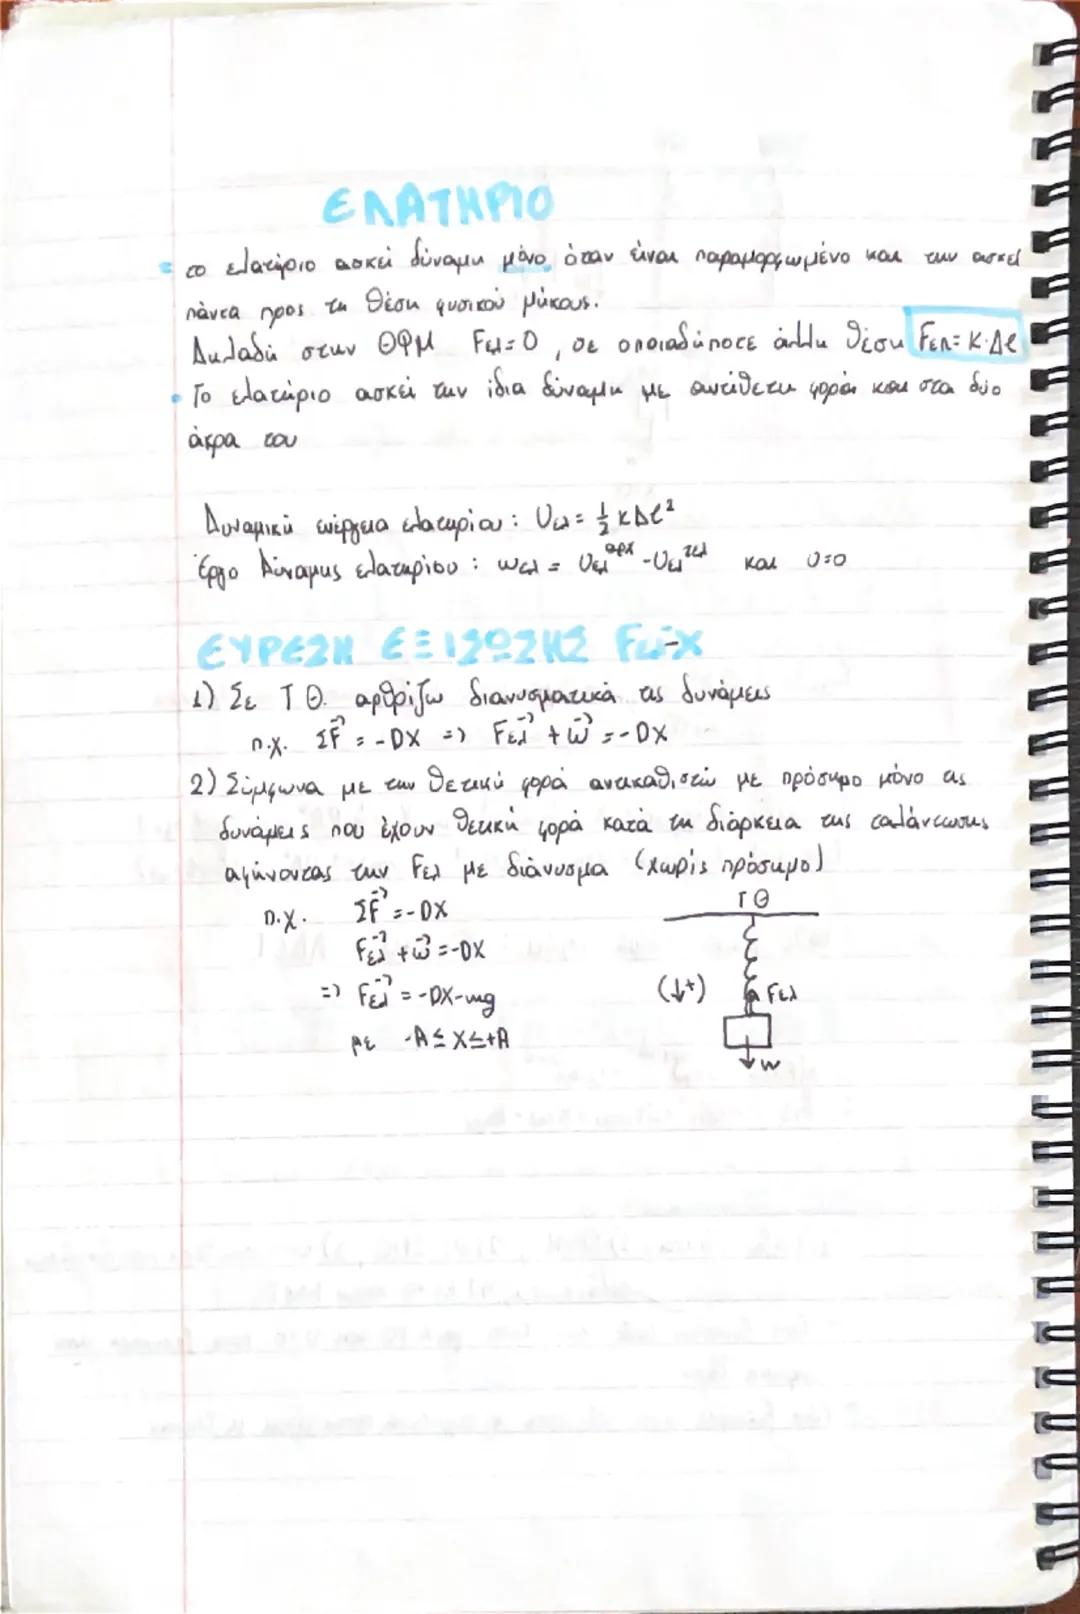 ΕΛΑΤΗΡΙΟ
το ελατήριο ασκεί δύναμη μόνο όταν είναι παραμορφωμένο και την ασκεί
πάντα προς τη θέση φυσικού μήκους.
Δηλαδή στην ΘΦΜ Fελ=0, σε οποιαδήποτε άλλη θέση Fελ=K·Δl
• Το ελατήριο ασκεί την ίδια δύναμη με αντίθετη φορά και στα δύο
άκρα του
Δυναμική ενέργεια ελατηρίου: Uελ = ½ KΔl²
Έργο Δύναμης ελατηρίου: Wελ = Uελ^αρχ - Uελ^τελ και υ=0
ΕΥΡΕΣΗ ΕΞΙΣΩΣΗΣ Fελ-X
1) Σε Τ.Θ. αρθρίζω διανυσματικά τις δυνάμεις
π.χ. ΣF⃗ = -DX => Fελ⃗ + w⃗ = -DX
2) Σύμφωνα με την θετική φορά αντικαθιστώ με πρόσημο μόνο τις
δυνάμεις που έχουν θετική φορά κατά τη διάρκεια της ταλάντωσης
αφήνοντας την Fελ με διάνυσμα (χωρίς πρόσημο)
π.χ. ΣF⃗ = -DX
Fελ⃗ + w⃗ = -DX
=> Fελ⃗ = -DX-mg
με -A ≤ X ≤ +A
ΤΘ
(↓+)
Fελ
w